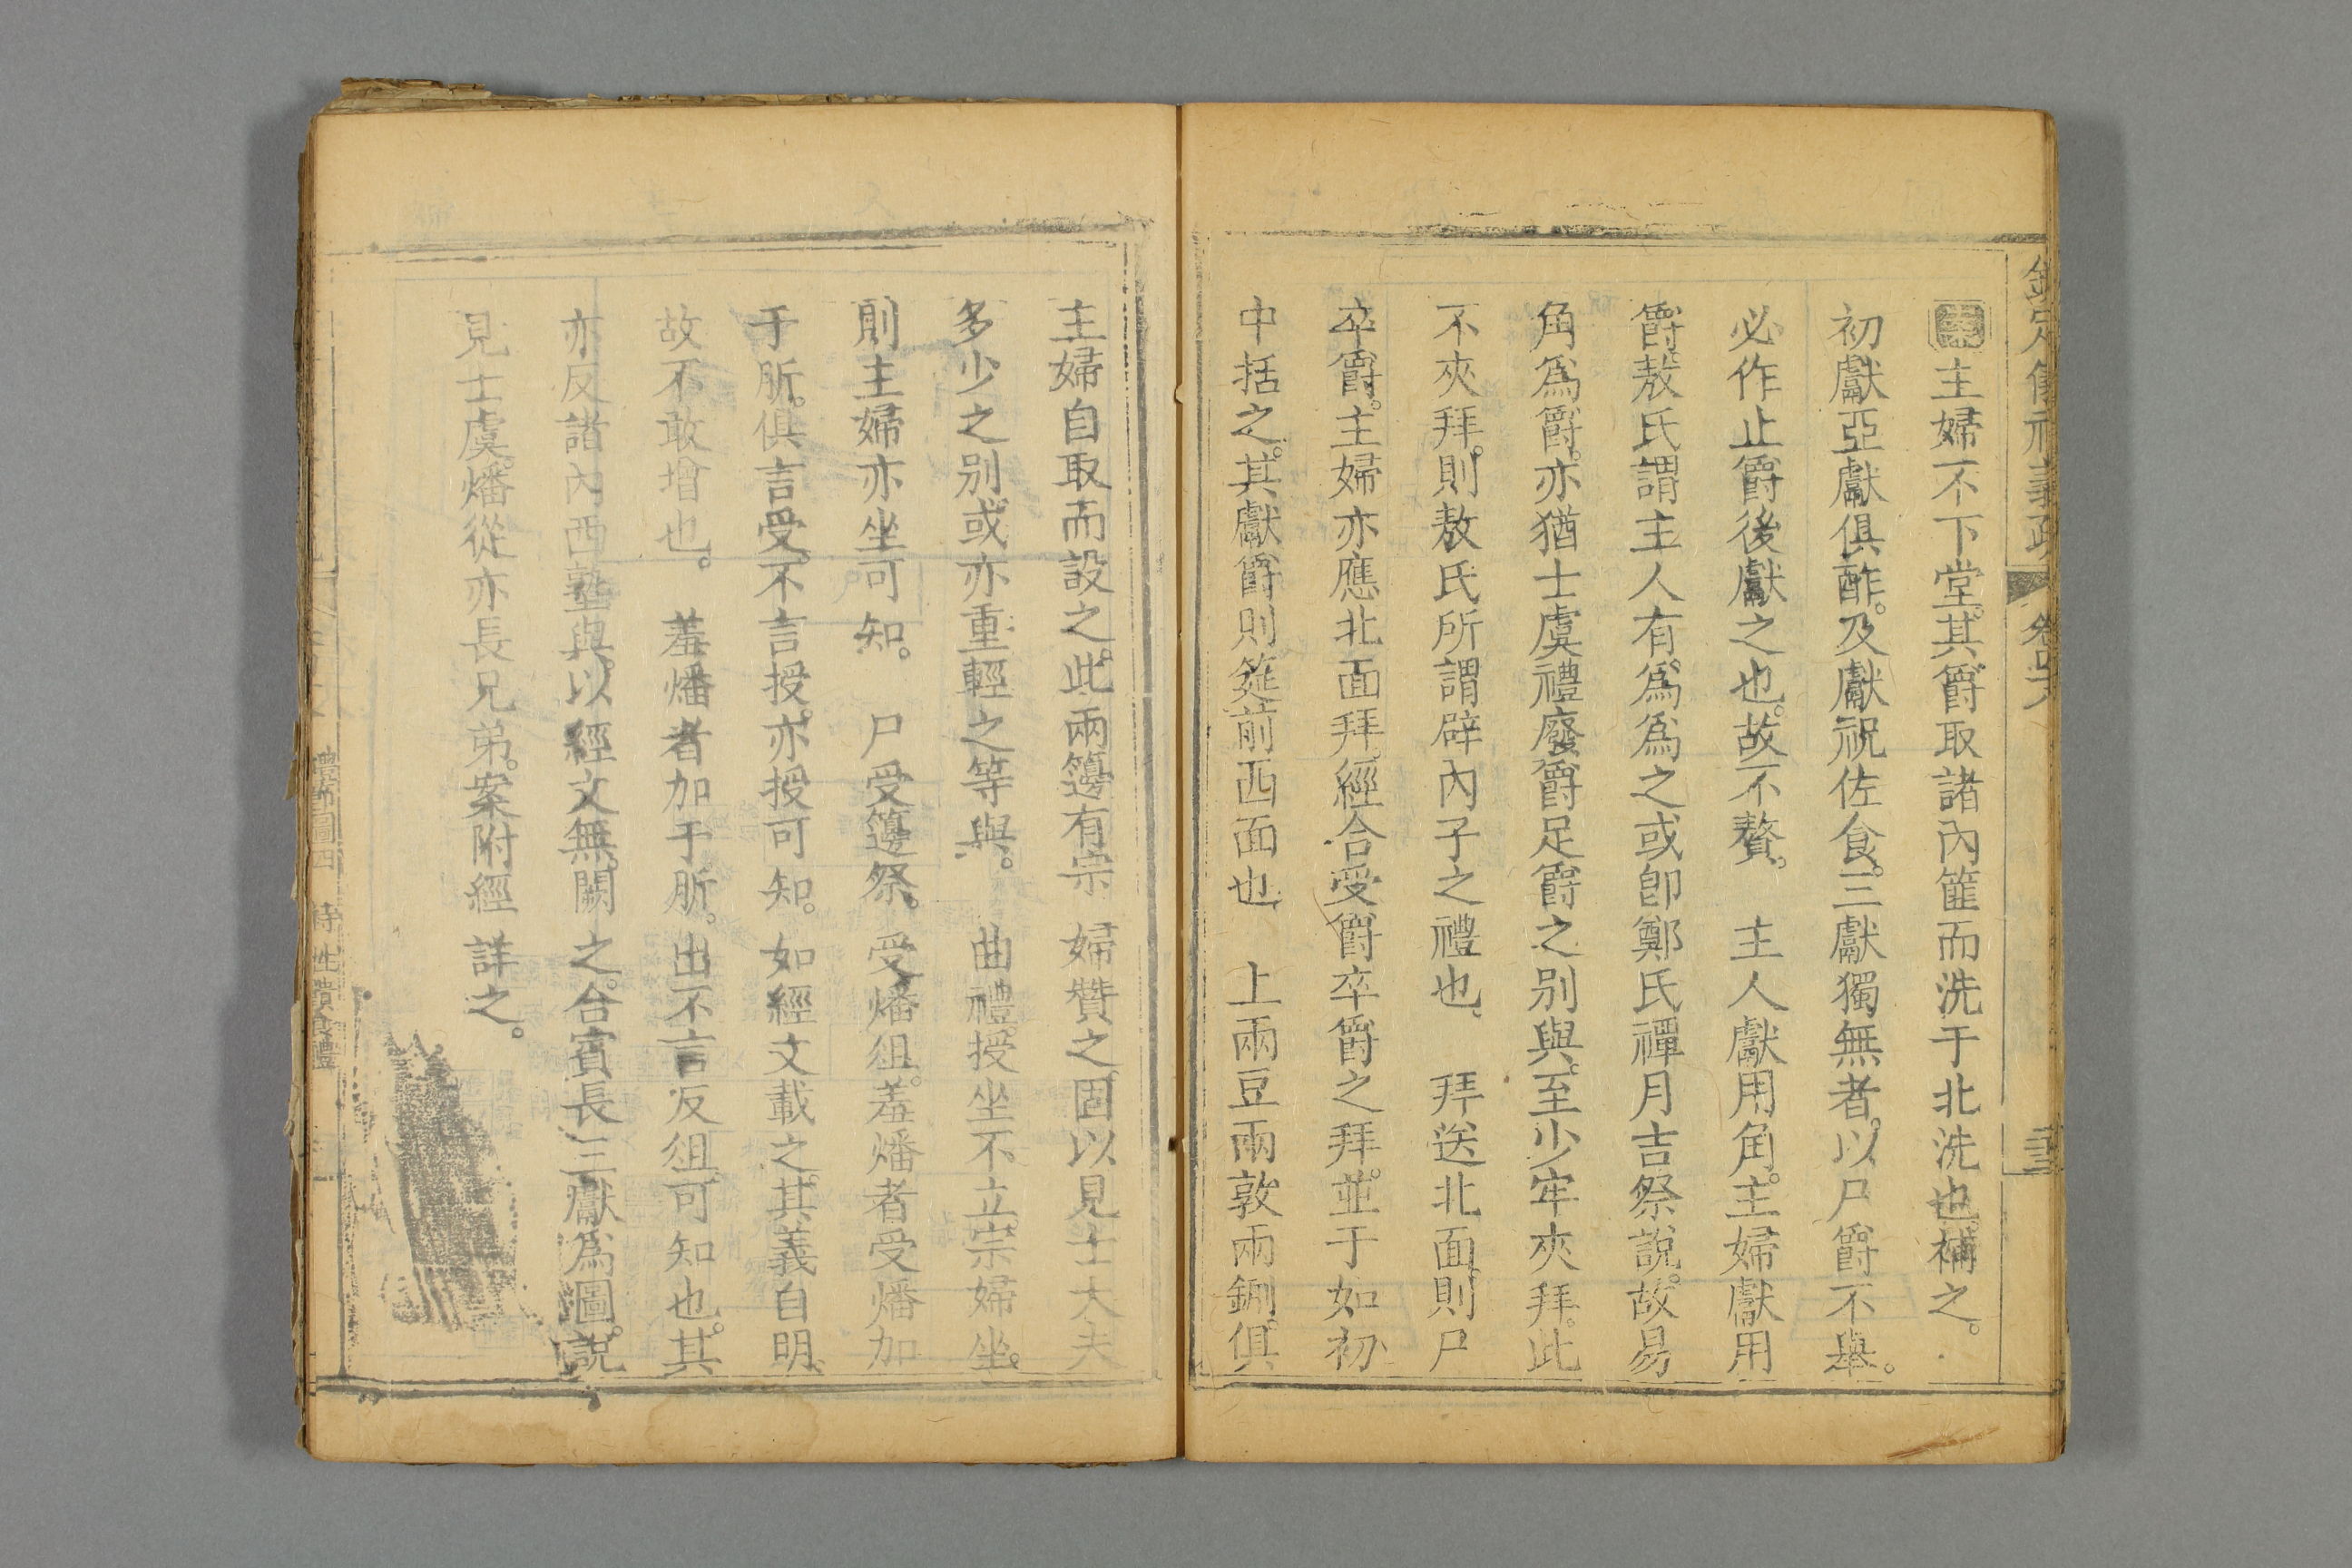 欽定儀禮義疏 卷四六
案主婦不下堂。其爵取諸內篚而洗于北洗也。補之。
初獻亞獻俱酢。及獻祝佐食。三獻獨無者。以尸爵不舉。
必作止爵後獻之也。故不贅。 主人獻用角。主婦獻用
爵。敖氏謂主人有爲爲之。或卽鄭氏禫月吉祭說。故易
角爲爵。亦猶士虞禮廢爵足爵之別與。至少牢夾拜。此
不夾拜。則敖氏所謂辟內子之禮也。 拜送北面。則尸
卒爵。主婦亦應北面拜。經合受爵卒爵之拜。並于如初
中括之。其獻爵則筵前西面也。 上兩豆兩敦兩鉶。俱
主婦自取而設之。此兩籩有宗婦贊之。固以見士大夫
多少之別。或亦重輕之等與。 曲禮。授坐不立。宗婦坐。
則主婦亦坐可知。 尸受籩祭。受燔俎。羞燔者受燔加
于肵。俱言受。不言授。亦授可知。如經文載之。其義自明。
故不敢增也。 羞燔者加于肵。出不言反俎。可知也。其
亦反諸內西塾與。以經文無。闕之。合賓長三獻爲圖。說
見士虞。燔從亦長兄弟。案附經詳之。
禮節圖四 特牲饋食禮